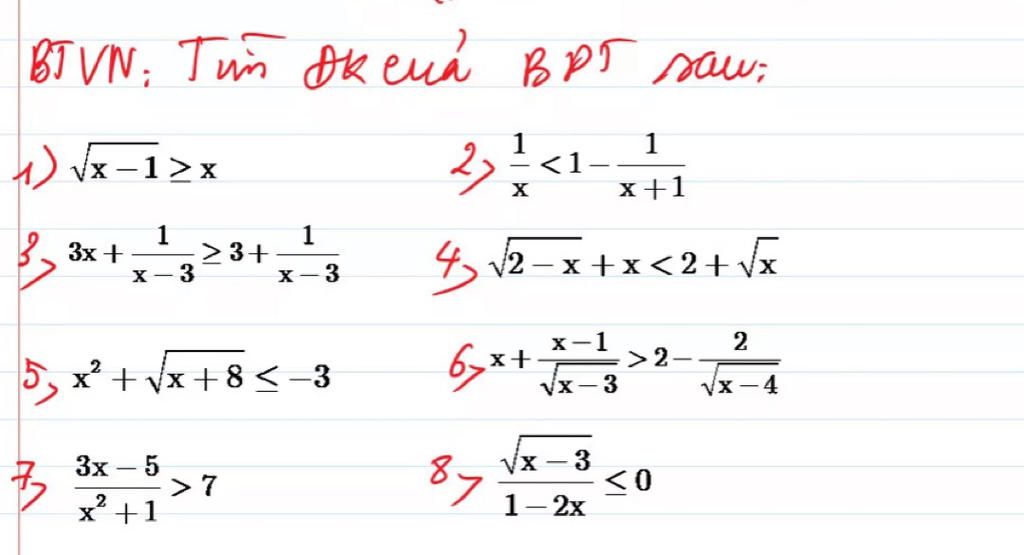 BTVN: Tìm ĐK của BPT sau:
1) √(x − 1) ≥ x 2) 1/x < 1 − 1/(x + 1)
3) 3x + 1/(x − 3) ≥ 3 + 1/(x − 3) 4) √(2 − x) + x < 2 + √x
5) x² + √(x + 8) ≤ −3 6) x + (x − 1)/√(x − 3) > 2 − 2/√(x − 4)
7) (3x − 5)/(x² + 1) > 7 8) √(x − 3)/(1 − 2x) ≤ 0